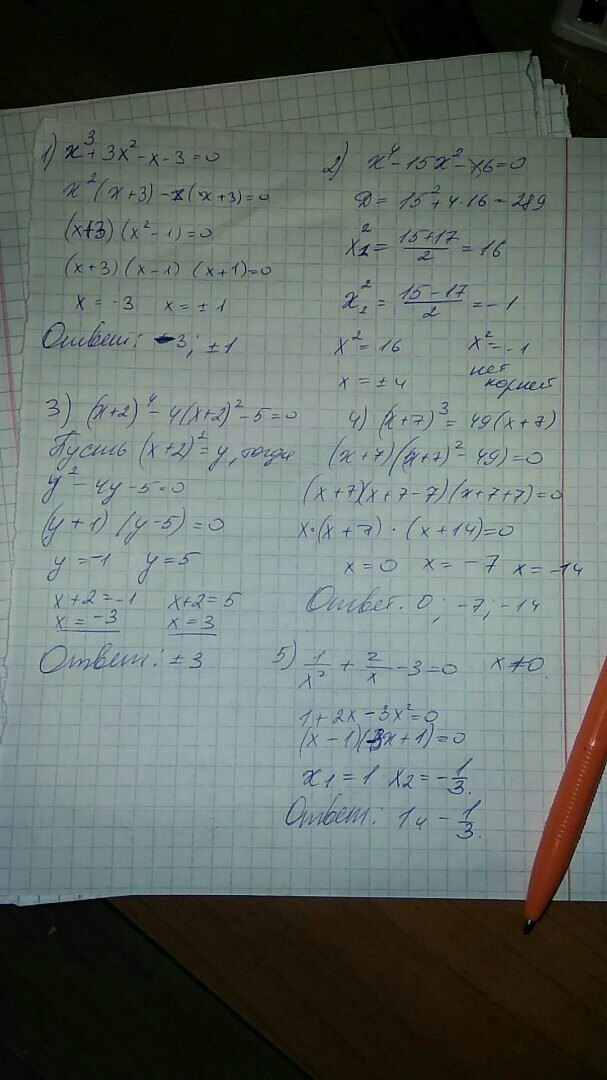 1) x³+3x²-x-3=0
x²(x+3)-x(x+3)=0
(x+3)(x²-1)=0
(x+3)(x-1)(x+1)=0
x=-3 x=±1
Ответ: -3; ±1
2) x⁴-15x²-16=0
D=15²+4·16=289
x₁²=(15+17)/2=16
x₂²=(15-17)/2=-1
x²=16 x²=-1
x=±4 нет
корней
3) (x+2)⁴-4(x+2)²-5=0
Пусть (x+2)²=y, тогда
y²-4y-5=0
(y+1)(y-5)=0
y=-1 y=5
x+2=-1 x+2=5
x=-3 x=3
Ответ: ±3
4) (x+7)³=49(x+7)
(x+7)((x+7)²-49)=0
(x+7)(x+7-7)(x+7+7)=0
x·(x+7)·(x+14)=0
x=0 x=-7 x=-14
Ответ: 0; -7; -14
5) 1/x²+2/x-3=0 x≠0
1+2x-3x²=0
(x-1)(3x+1)=0
x₁=1 x₂=-1/3.
Ответ: 1 и -1/3.